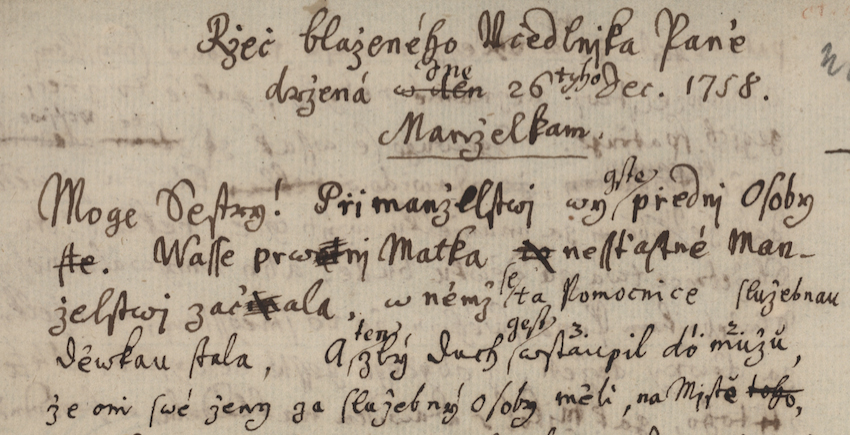 Ržeč blaženého Učedlnjka Páně
držená w den dne 26tyho Dec. 1758.
Manželkam.
Moge Sestry! Při manželstwj wy gste předni Osoby
ste. Wasse prwnj Matka to nessťastné Man-
želstwj začala, w němž se ta Pomocnice služebnau
děwkau stala, A ten zlý duch gest wstaupil do mužů,
že oni swé ženy za služebný Osoby měli, na Mistě toho,